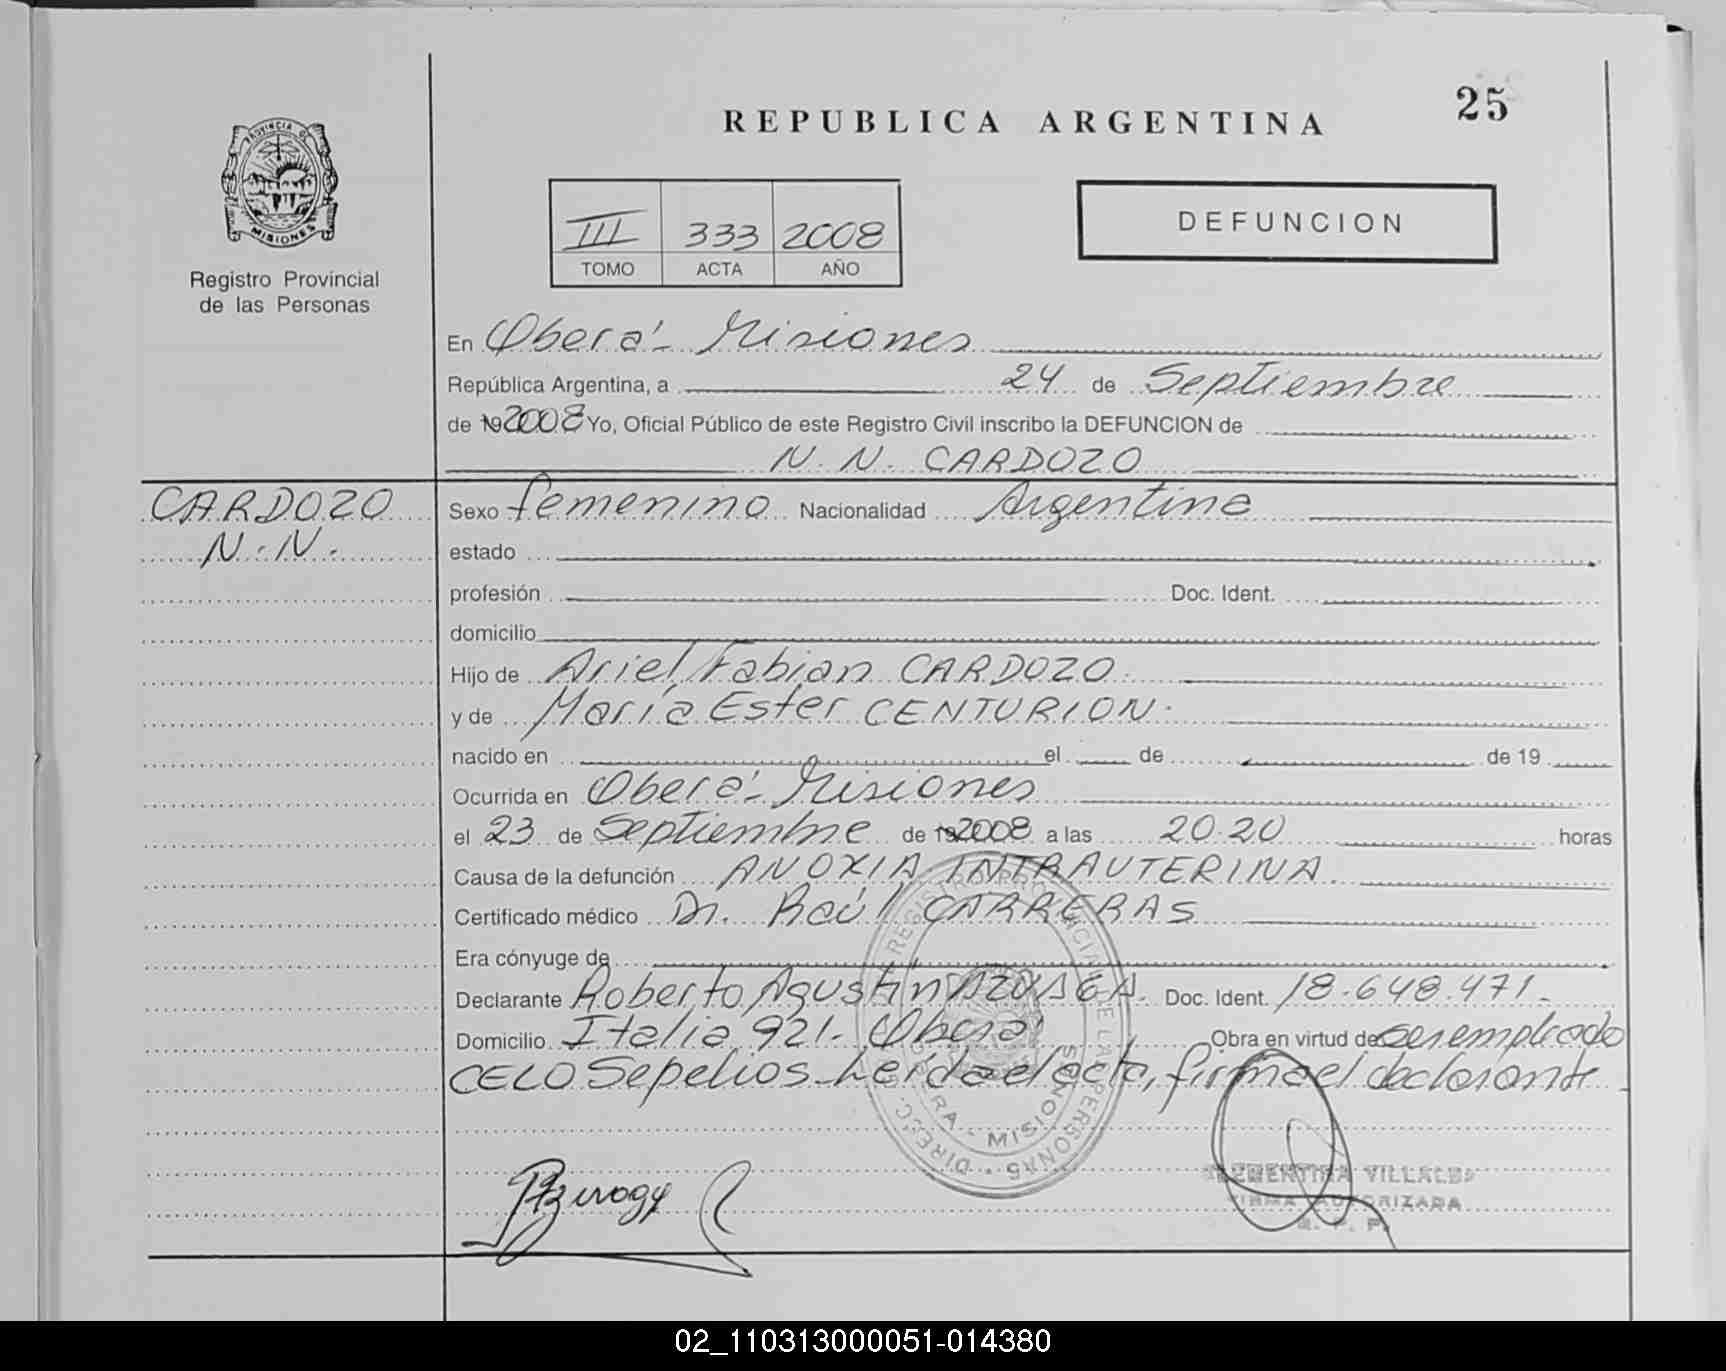 25
REPUBLICA ARGENTINA
PROVINCIA DE
MISIONES
Registro Provincial
de las Personas
III 333 2008
TOMO ACTA AÑO
DEFUNCION
En Oberá - Misiones
República Argentina, a 24 de Septiembre
de 192008 Yo, Oficial Público de este Registro Civil inscribo la DEFUNCION de
N. N. CARDOZO
CARDOZO
N. N.
Sexo femenino Nacionalidad Argentina
estado
profesión Doc. Ident.
domicilio
Hijo de Ariel Fabian CARDOZO
y de María Ester CENTURION.
nacido en el de de 19
Ocurrida en Oberá - Misiones
el 23 de Septiembre de 192008 a las 20.20 horas
Causa de la defunción ANOXIA INTRAUTERINA.
Certificado médico Dr. Raúl CARRERAS
Era cónyuge de
Declarante Roberto Agustín Doc. Ident. 18.648.471.-
Domicilio Italia 921 - Oberá Obra en virtud de ser empleado
CELO Sepelios. Leída el acta, firma el declarante
VILLALBA
FIRMA AUTORIZADA
R. P. P.
02_110313000051-014380